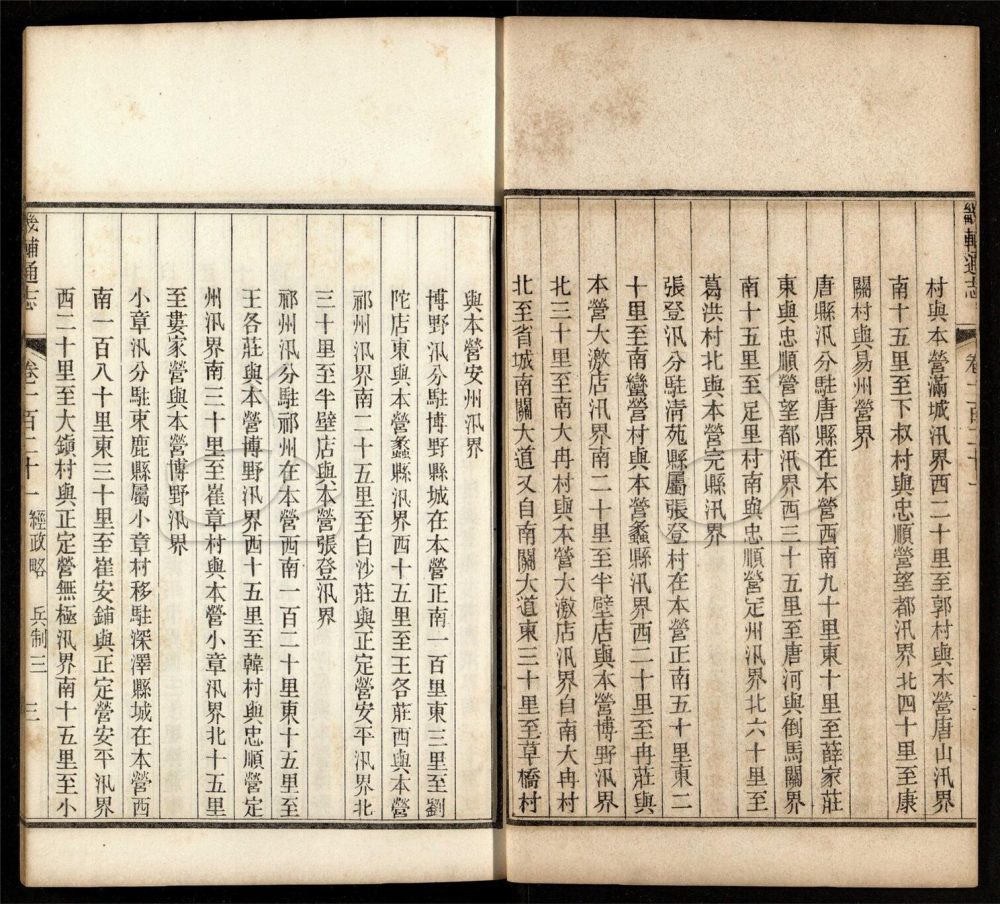 畿輔通志 卷一百二十一
村與本營滿城汛界西二十里至郭村與本營唐山汛界
南十五里至下叔村與忠順營望都汛界北四十里至康
關村與易州營界
唐縣汛分駐唐縣在本營西南九十里東十里至薛家莊
東與忠順營望都汛界西三十五里至唐河與倒馬關界
南十五里至足里村南與忠順營定州汛界北六十里至
葛洪村北與本營完縣汛界
張登汛分駐清苑縣屬張登村在本營正南五十里東二
十里至南蠻營村與本營蠡縣汛界西二十里至冉莊與
本營大激店汛界南二十里至半壁店與本營博野汛界
北三十里至南大冉村與本營大激店汛界自南大冉村
北至省城南關大道又自南關大道東三十里至草橋村
與本營安州汛界
博野汛分駐博野縣城在本營正南一百里東三里至劉
陀店東與本營蠡縣汛界西十五里至王各莊西與本營
祁州汛界南二十五里至白沙莊與正定營安平汛界北
三十里至半壁店與本營張登汛界
祁州汛分駐祁州在本營西南一百二十里東十五里至
王各莊與本營博野汛界西十五里至韓村與忠順營定
州汛界南三十里至崔章村與本營小章汛界北十五里
至婁家營與本營博野汛界
小章汛分駐束鹿縣屬小章村移駐深澤縣城在本營西
南一百八十里東三十里至崔安鋪與正定營安平汛界
西二十里至大鎮村與正定營無極汛界南十五里至小
畿輔通志 卷一百二十一 經政略 兵制三 三